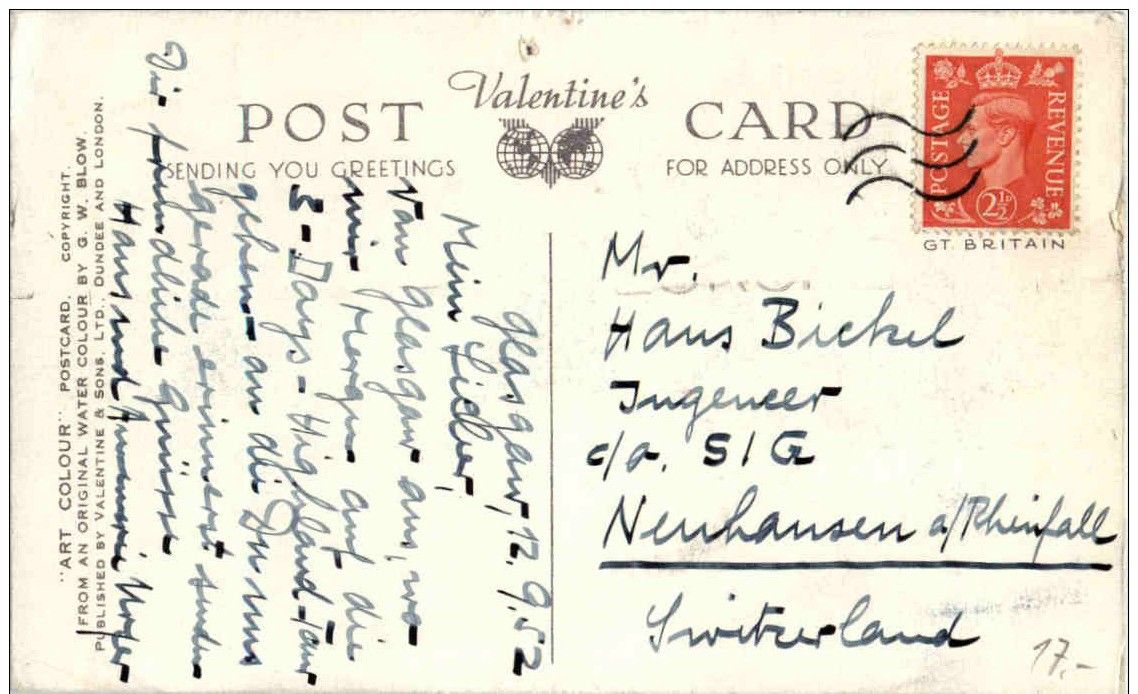 POST Valentine's CARD
SENDING YOU GREETINGS
FOR ADDRESS ONLY
POSTAGE
REVENUE
2½D
GT. BRITAIN
"ART COLOUR" POSTCARD. COPYRIGHT.
FROM AN ORIGINAL WATER COLOUR BY G. W. BLOW.
PUBLISHED BY VALENTINE & SONS, LTD., DUNDEE AND LONDON.
Glasgow, 12.9.52
Mein Lieber,
Von Glasgow aus, wo
wir Morgen auf die
3-Days-Highland-Tour
gehen - an die Du uns
gerade erinnert
Dir freundliche Grüsse
Hans und Annemarie
Mr.
Hans Bickel
Ingeneer
c/o. SIG
Neuhausen a/Rheinfall
Switzerland
17.-